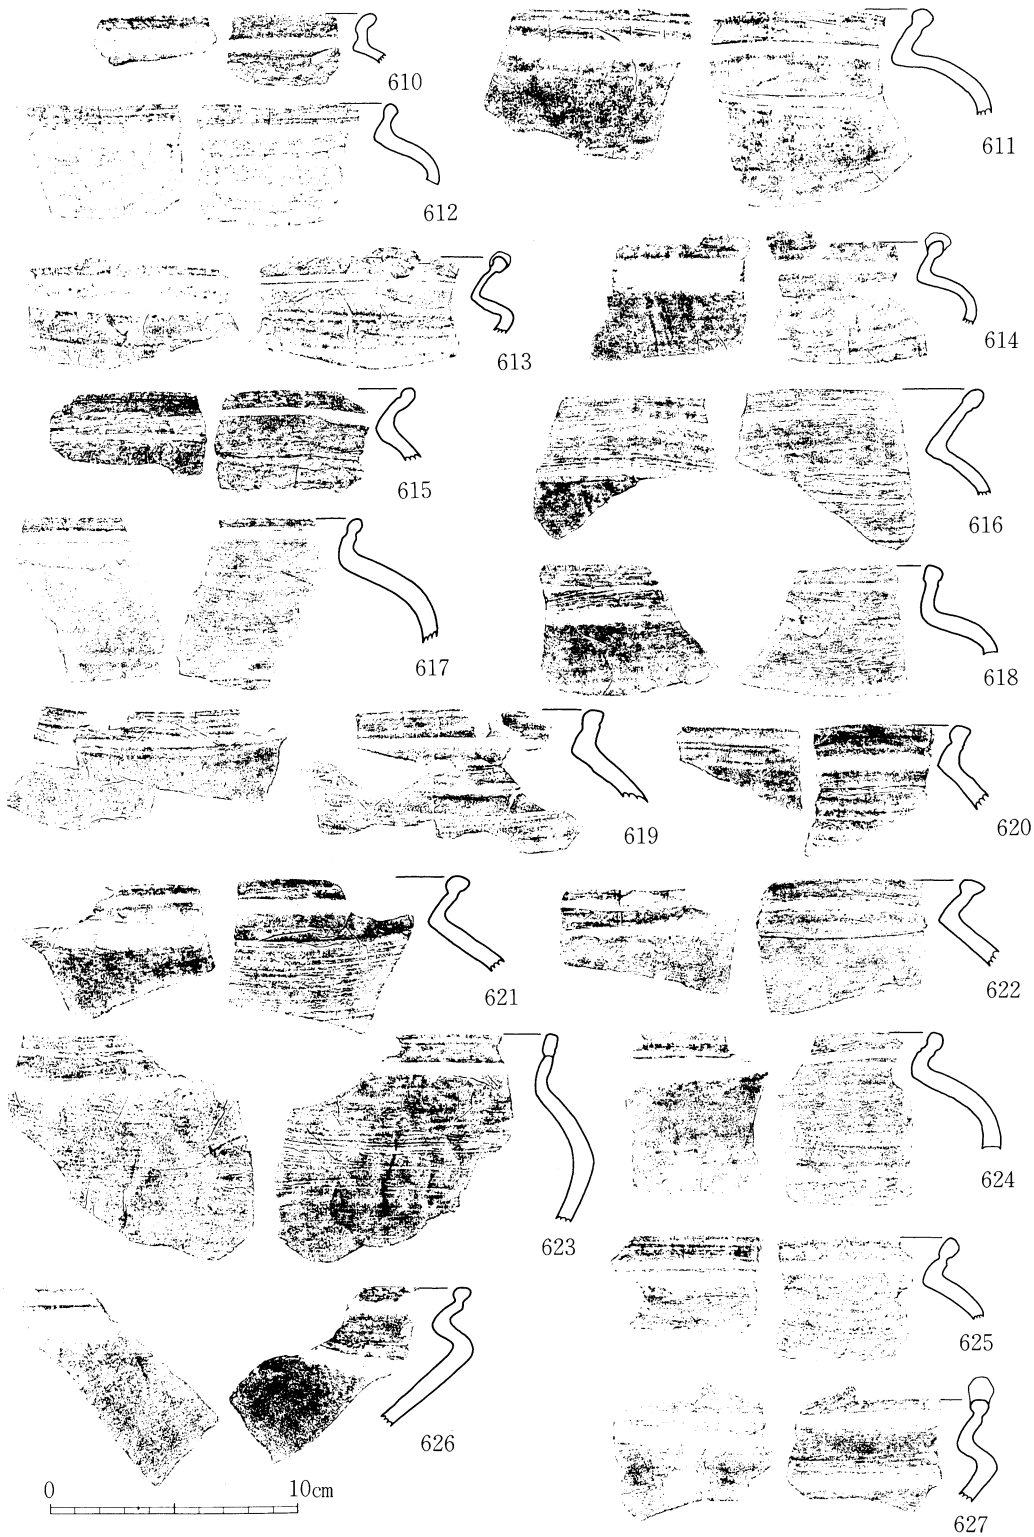 610
611
612
613
614
615
616
617
618
619
620
621
622
623
624
625
626
627
0 10cm